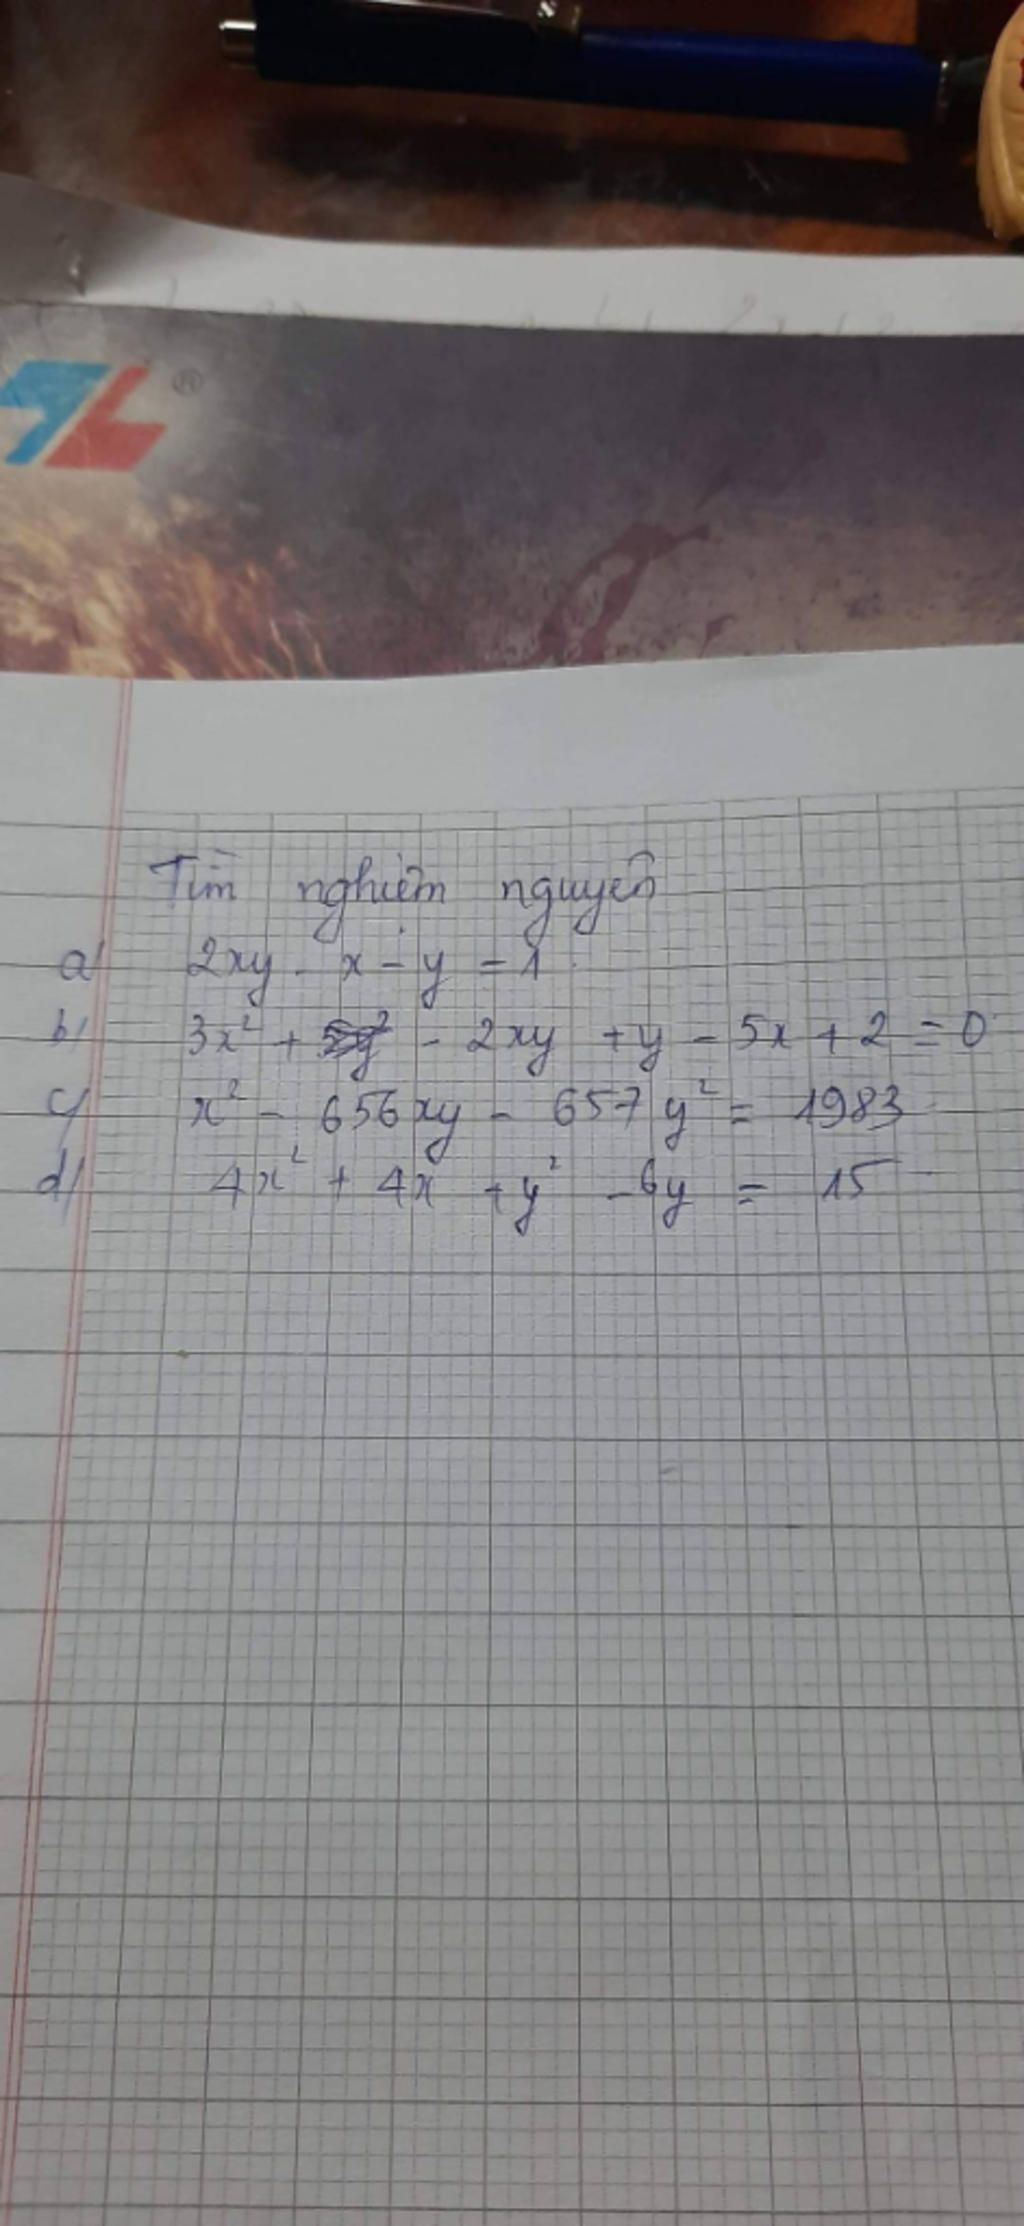 ®
Tìm nghiệm nguyên
a) 2xy - x - y = 1
b) 3x² + - 2xy + y - 5x + 2 = 0
c) x² - 656xy - 657y² = 1983
d) 4x² + 4x + y² - 6y = 15